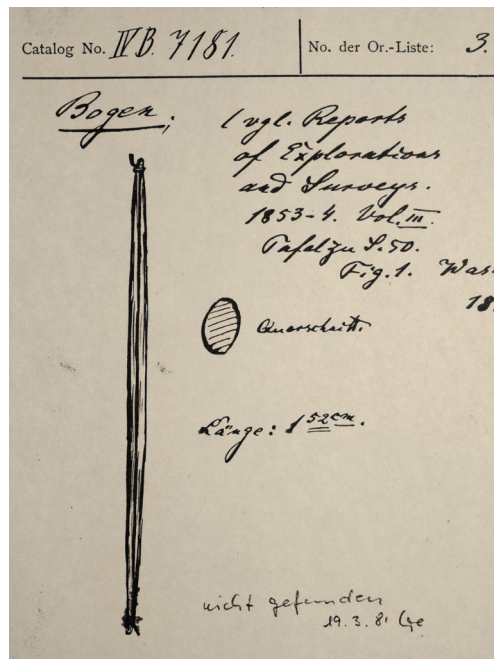 Catalog No. IV B. 7181. No. der Or.-Liste: 3.
Bogen; (vgl. Reports
of Explorations
and Surveys.
1853-4. Vol. III.
Tafel zu S. 50.
Fig. 1. Was
18
Querschnitt.
Länge: 1 52 cm.
nicht gefunden
19. 3. 81